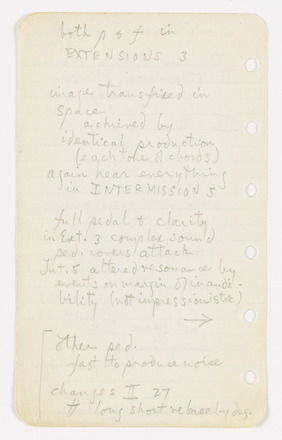 both p & f in
EXTENSIONS 3
image transfixed in
space
achieved by
identical production
(each tone of chords)
again hear everything
in INTERMISSION 5
full pedal & clarity
in Ext. 3 complex sound
ped. covers attack
Int. 5 altered resonance by
events on margin of inaudi-
bility (not impressionistic)
→
other ped.
fast to produce noise
changes II 27
# long short release by deg.